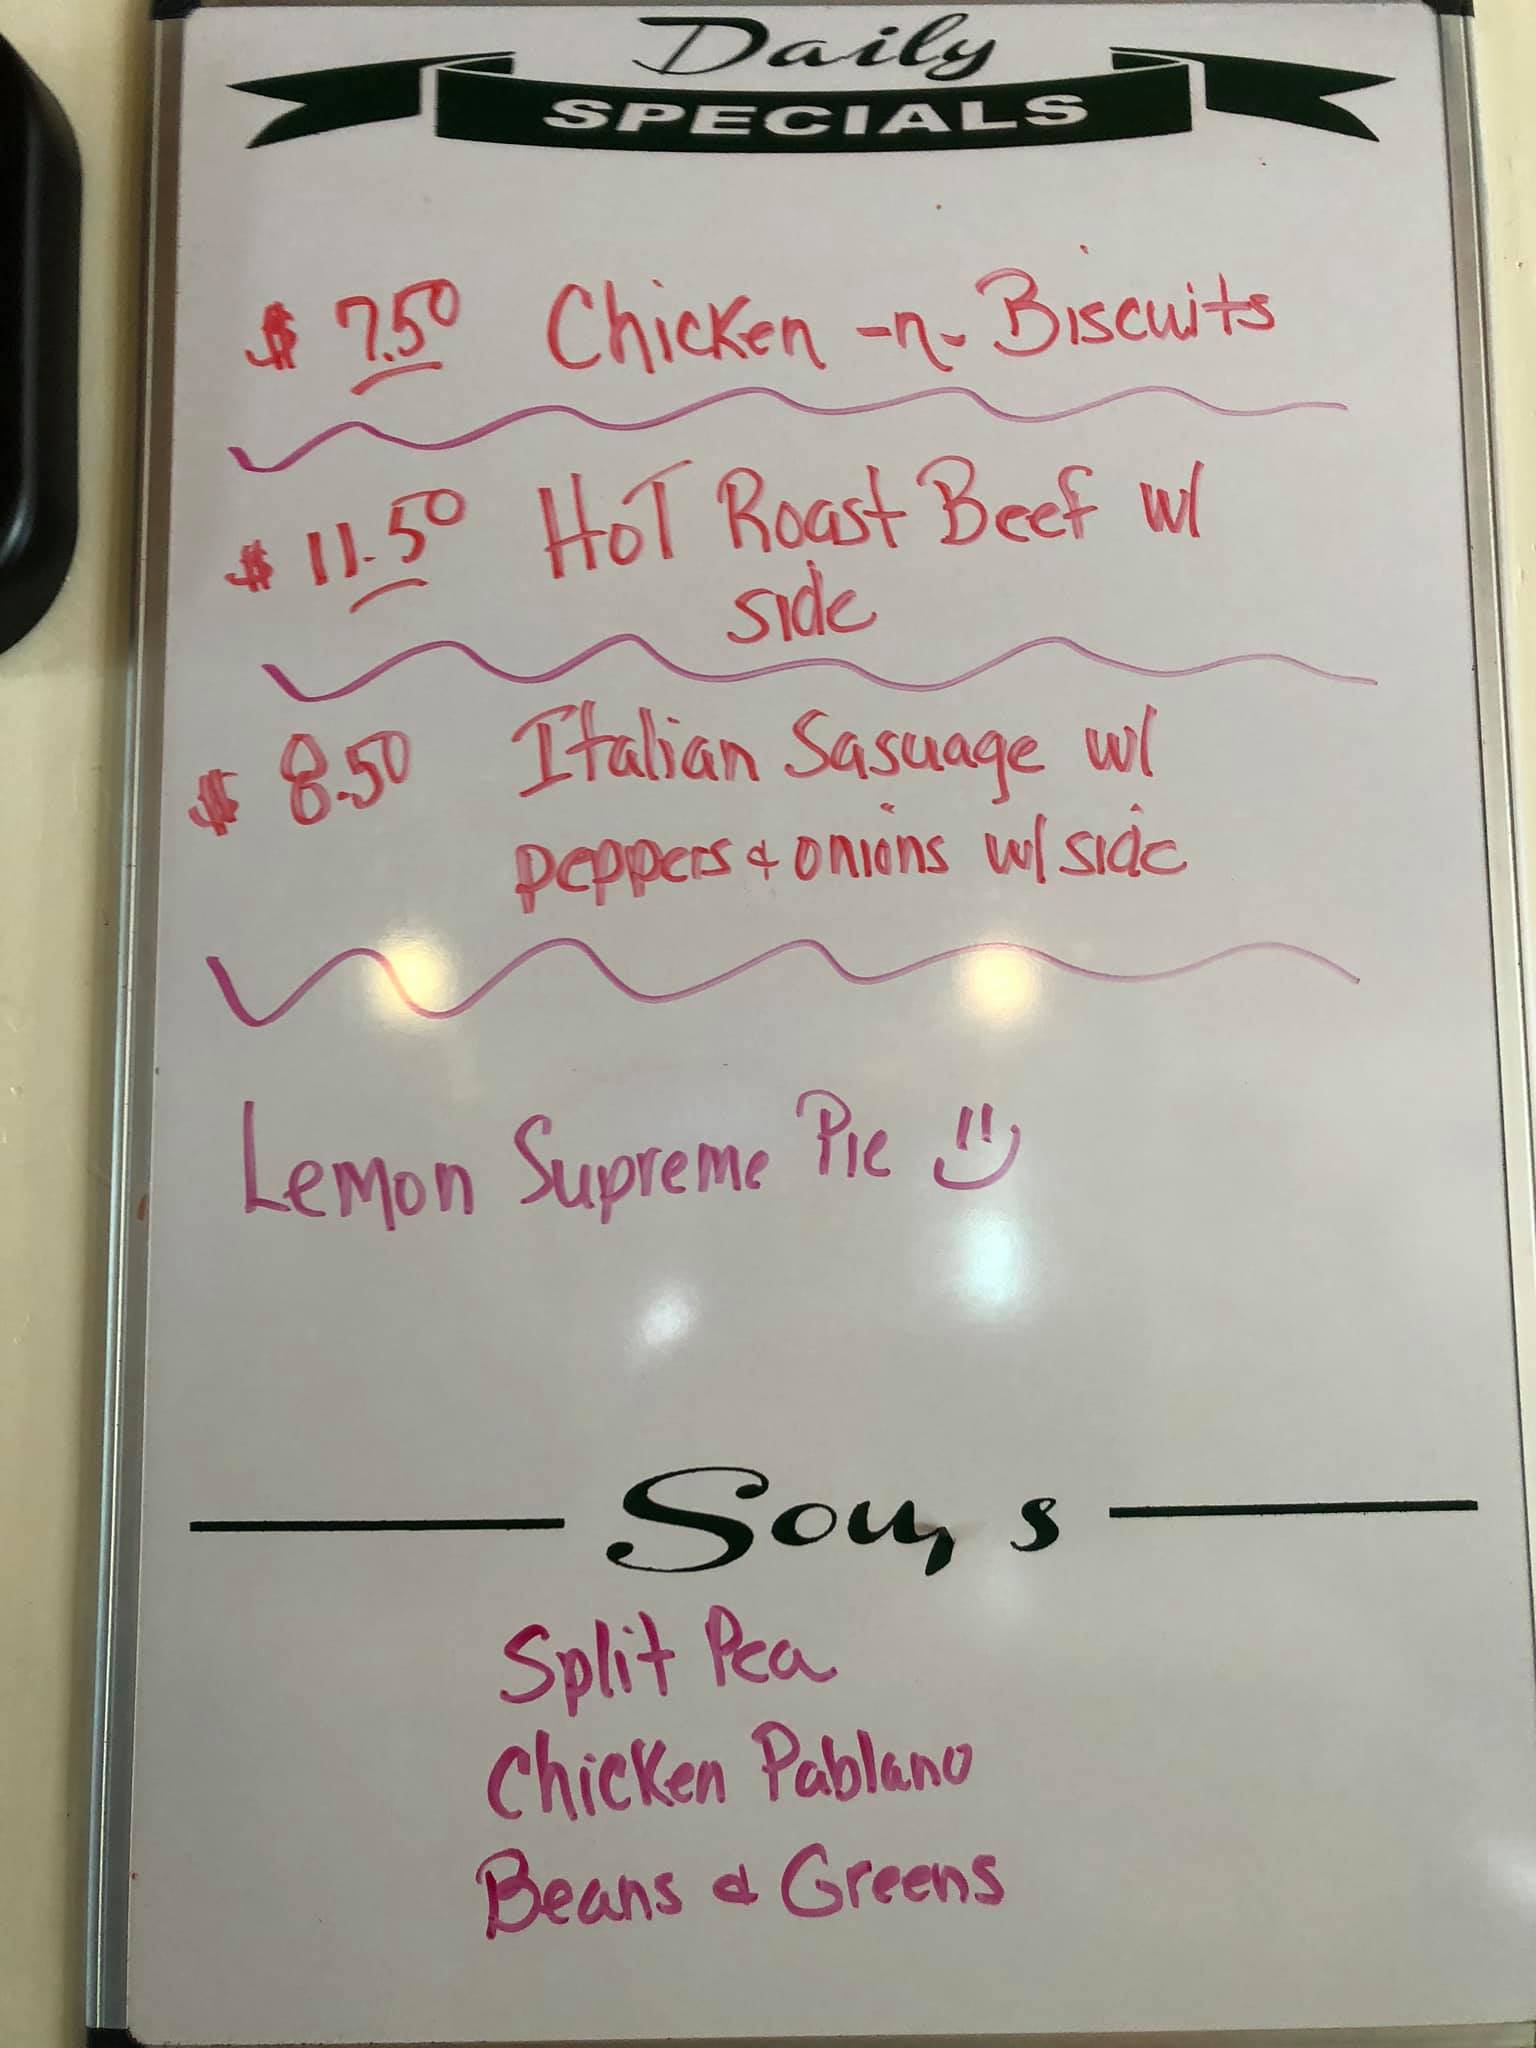 Daily
SPECIALS
$ 7.50 Chicken -n- Biscuits
$ 11.50 HOT Roast Beef w/
side
$ 8.50 Italian Sasuage w/
peppers & onions w/ side
Lemon Supreme Pie
Soups
Split Pea
Chicken Pablano
Beans & Greens